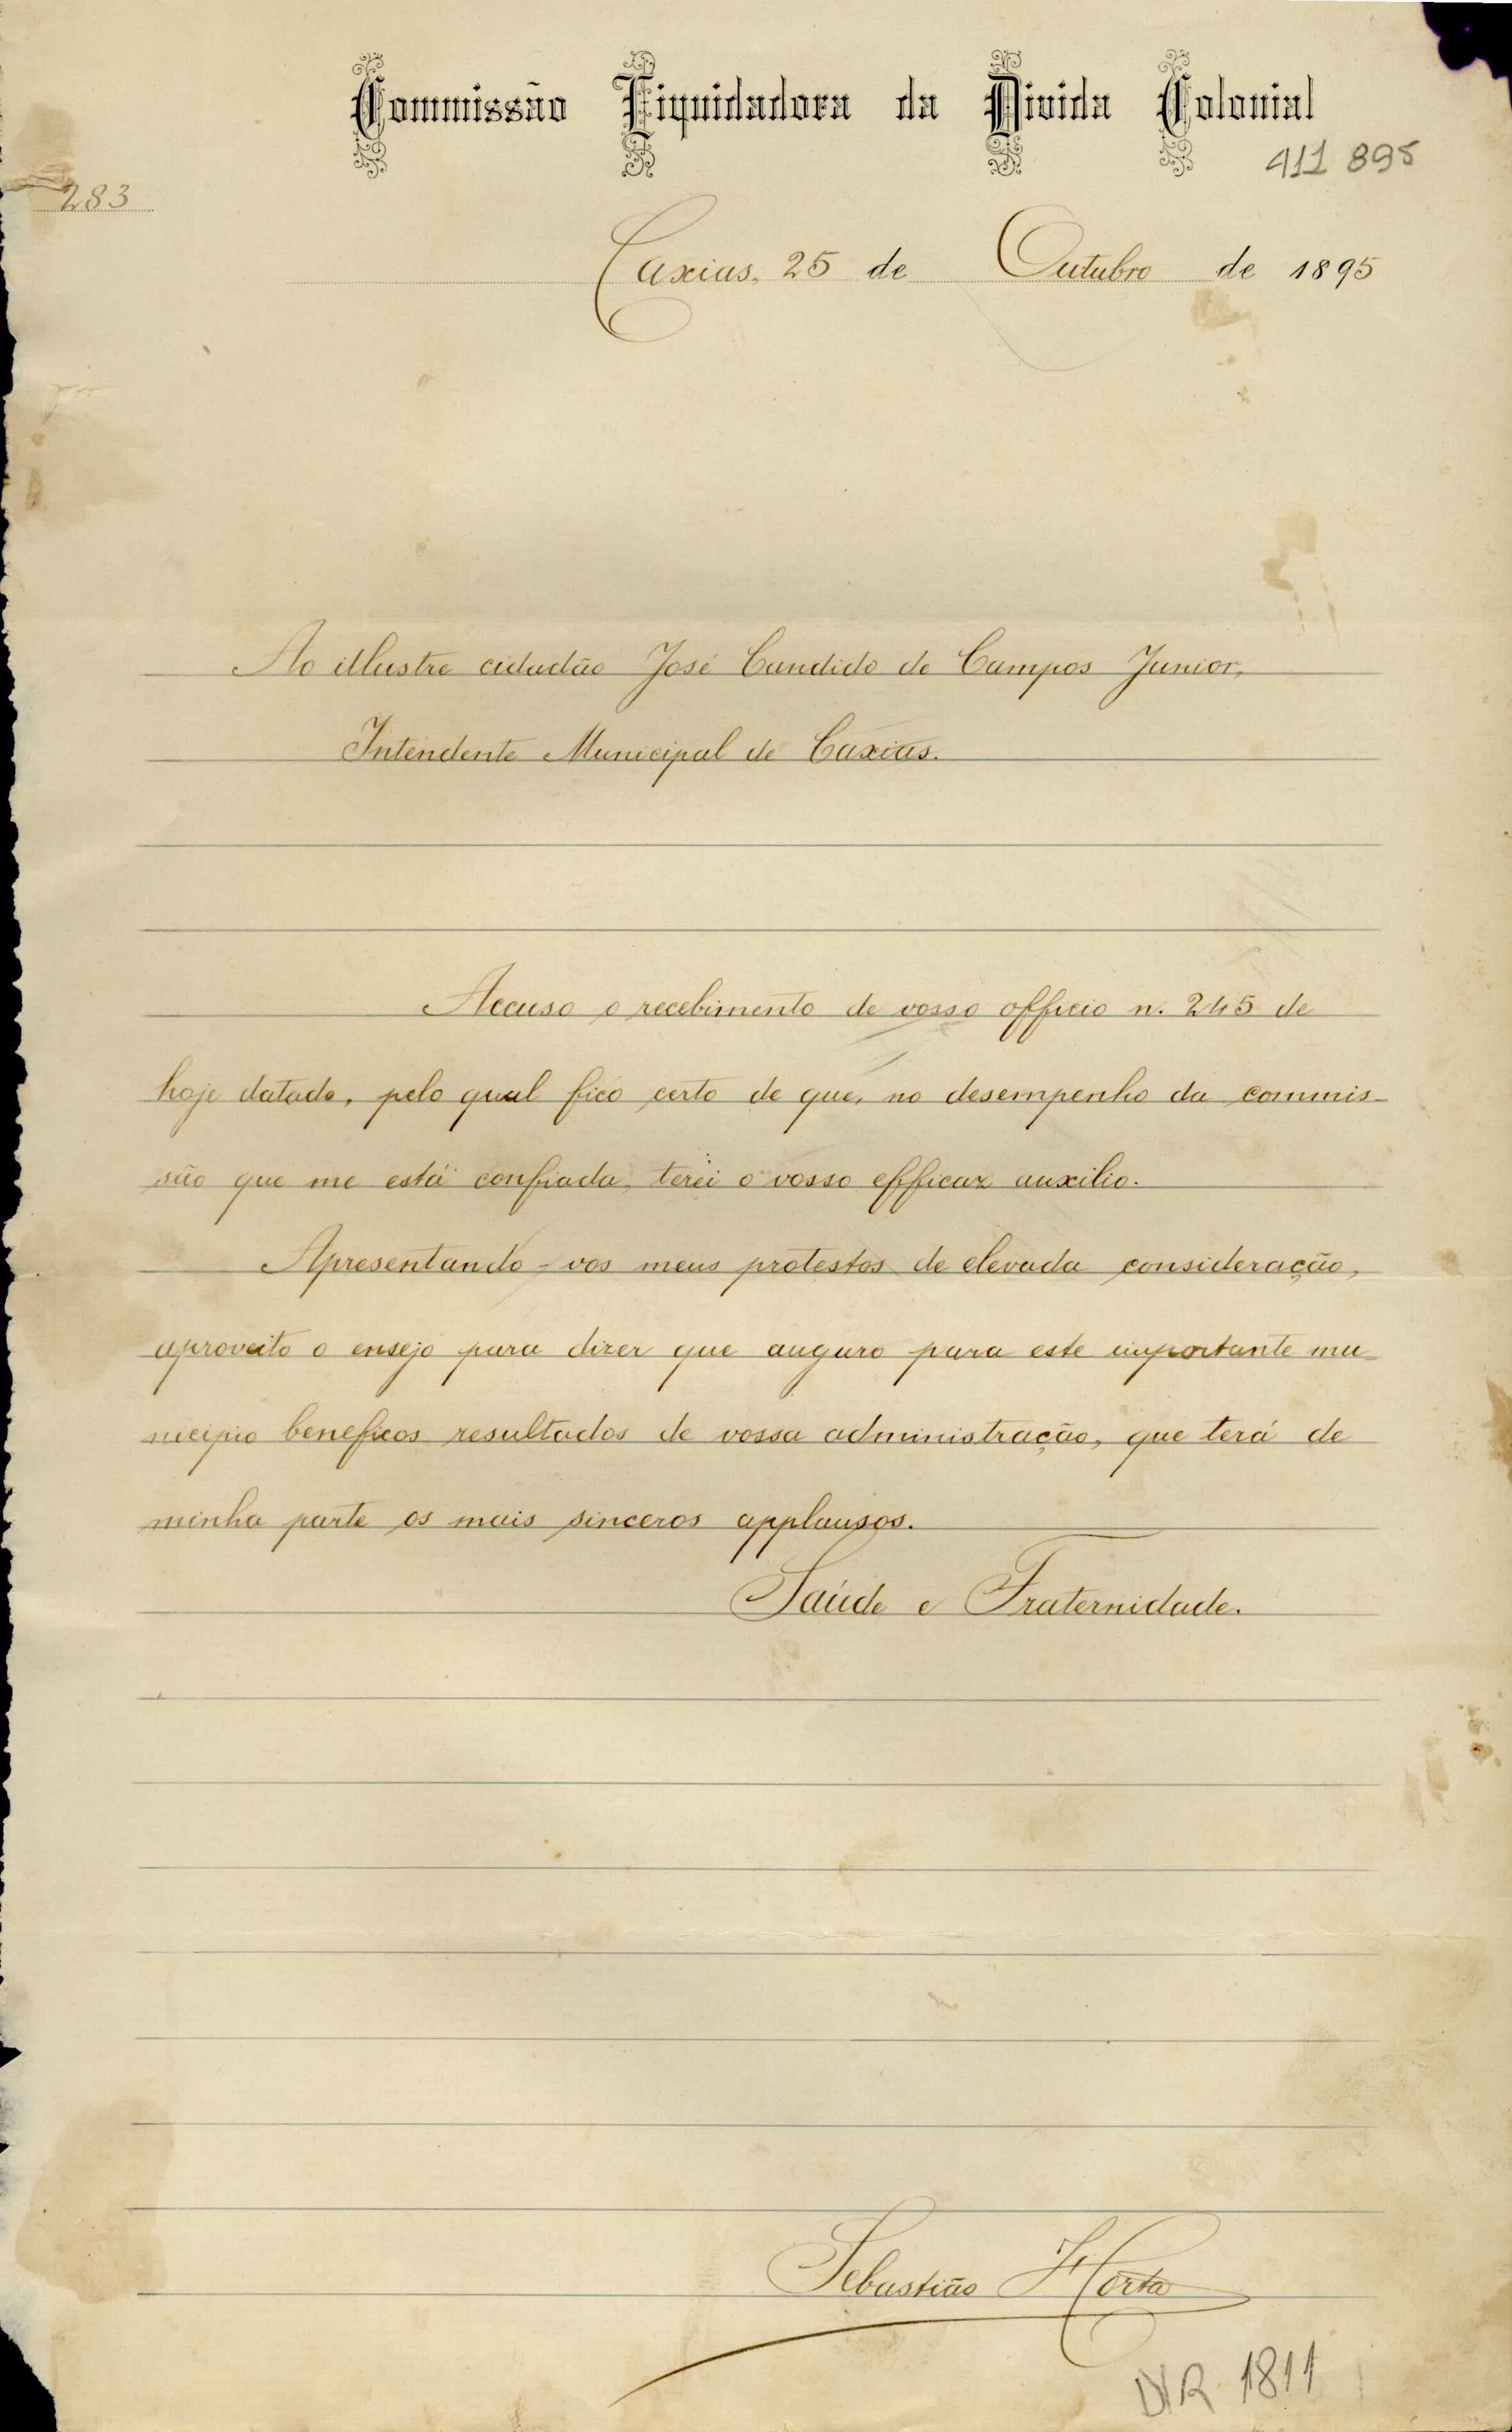 Commissão Liquidadora da Divida Colonial
411 895
283
Caxias, 25 de Outubro de 1895
Ao illustre cidadão José Candido de Campos Junior,
Intendente Municipal de Caxias.
Accuso o recebimento de vosso officio n. 245 de
hoje datado, pelo qual fico certo de que, no desempenho da commis-
são que me está confiada, terei o vosso efficaz auxilio.
Apresentando-vos meus protestos de elevada consideração,
aproveito o ensejo para dizer que auguro para este importante mu-
nicipio beneficos resultados de vossa administração, que terá de
minha parte os mais sinceros applausos.
Saúde e Fraternidade.
Sebastião Horta
DIR 1811